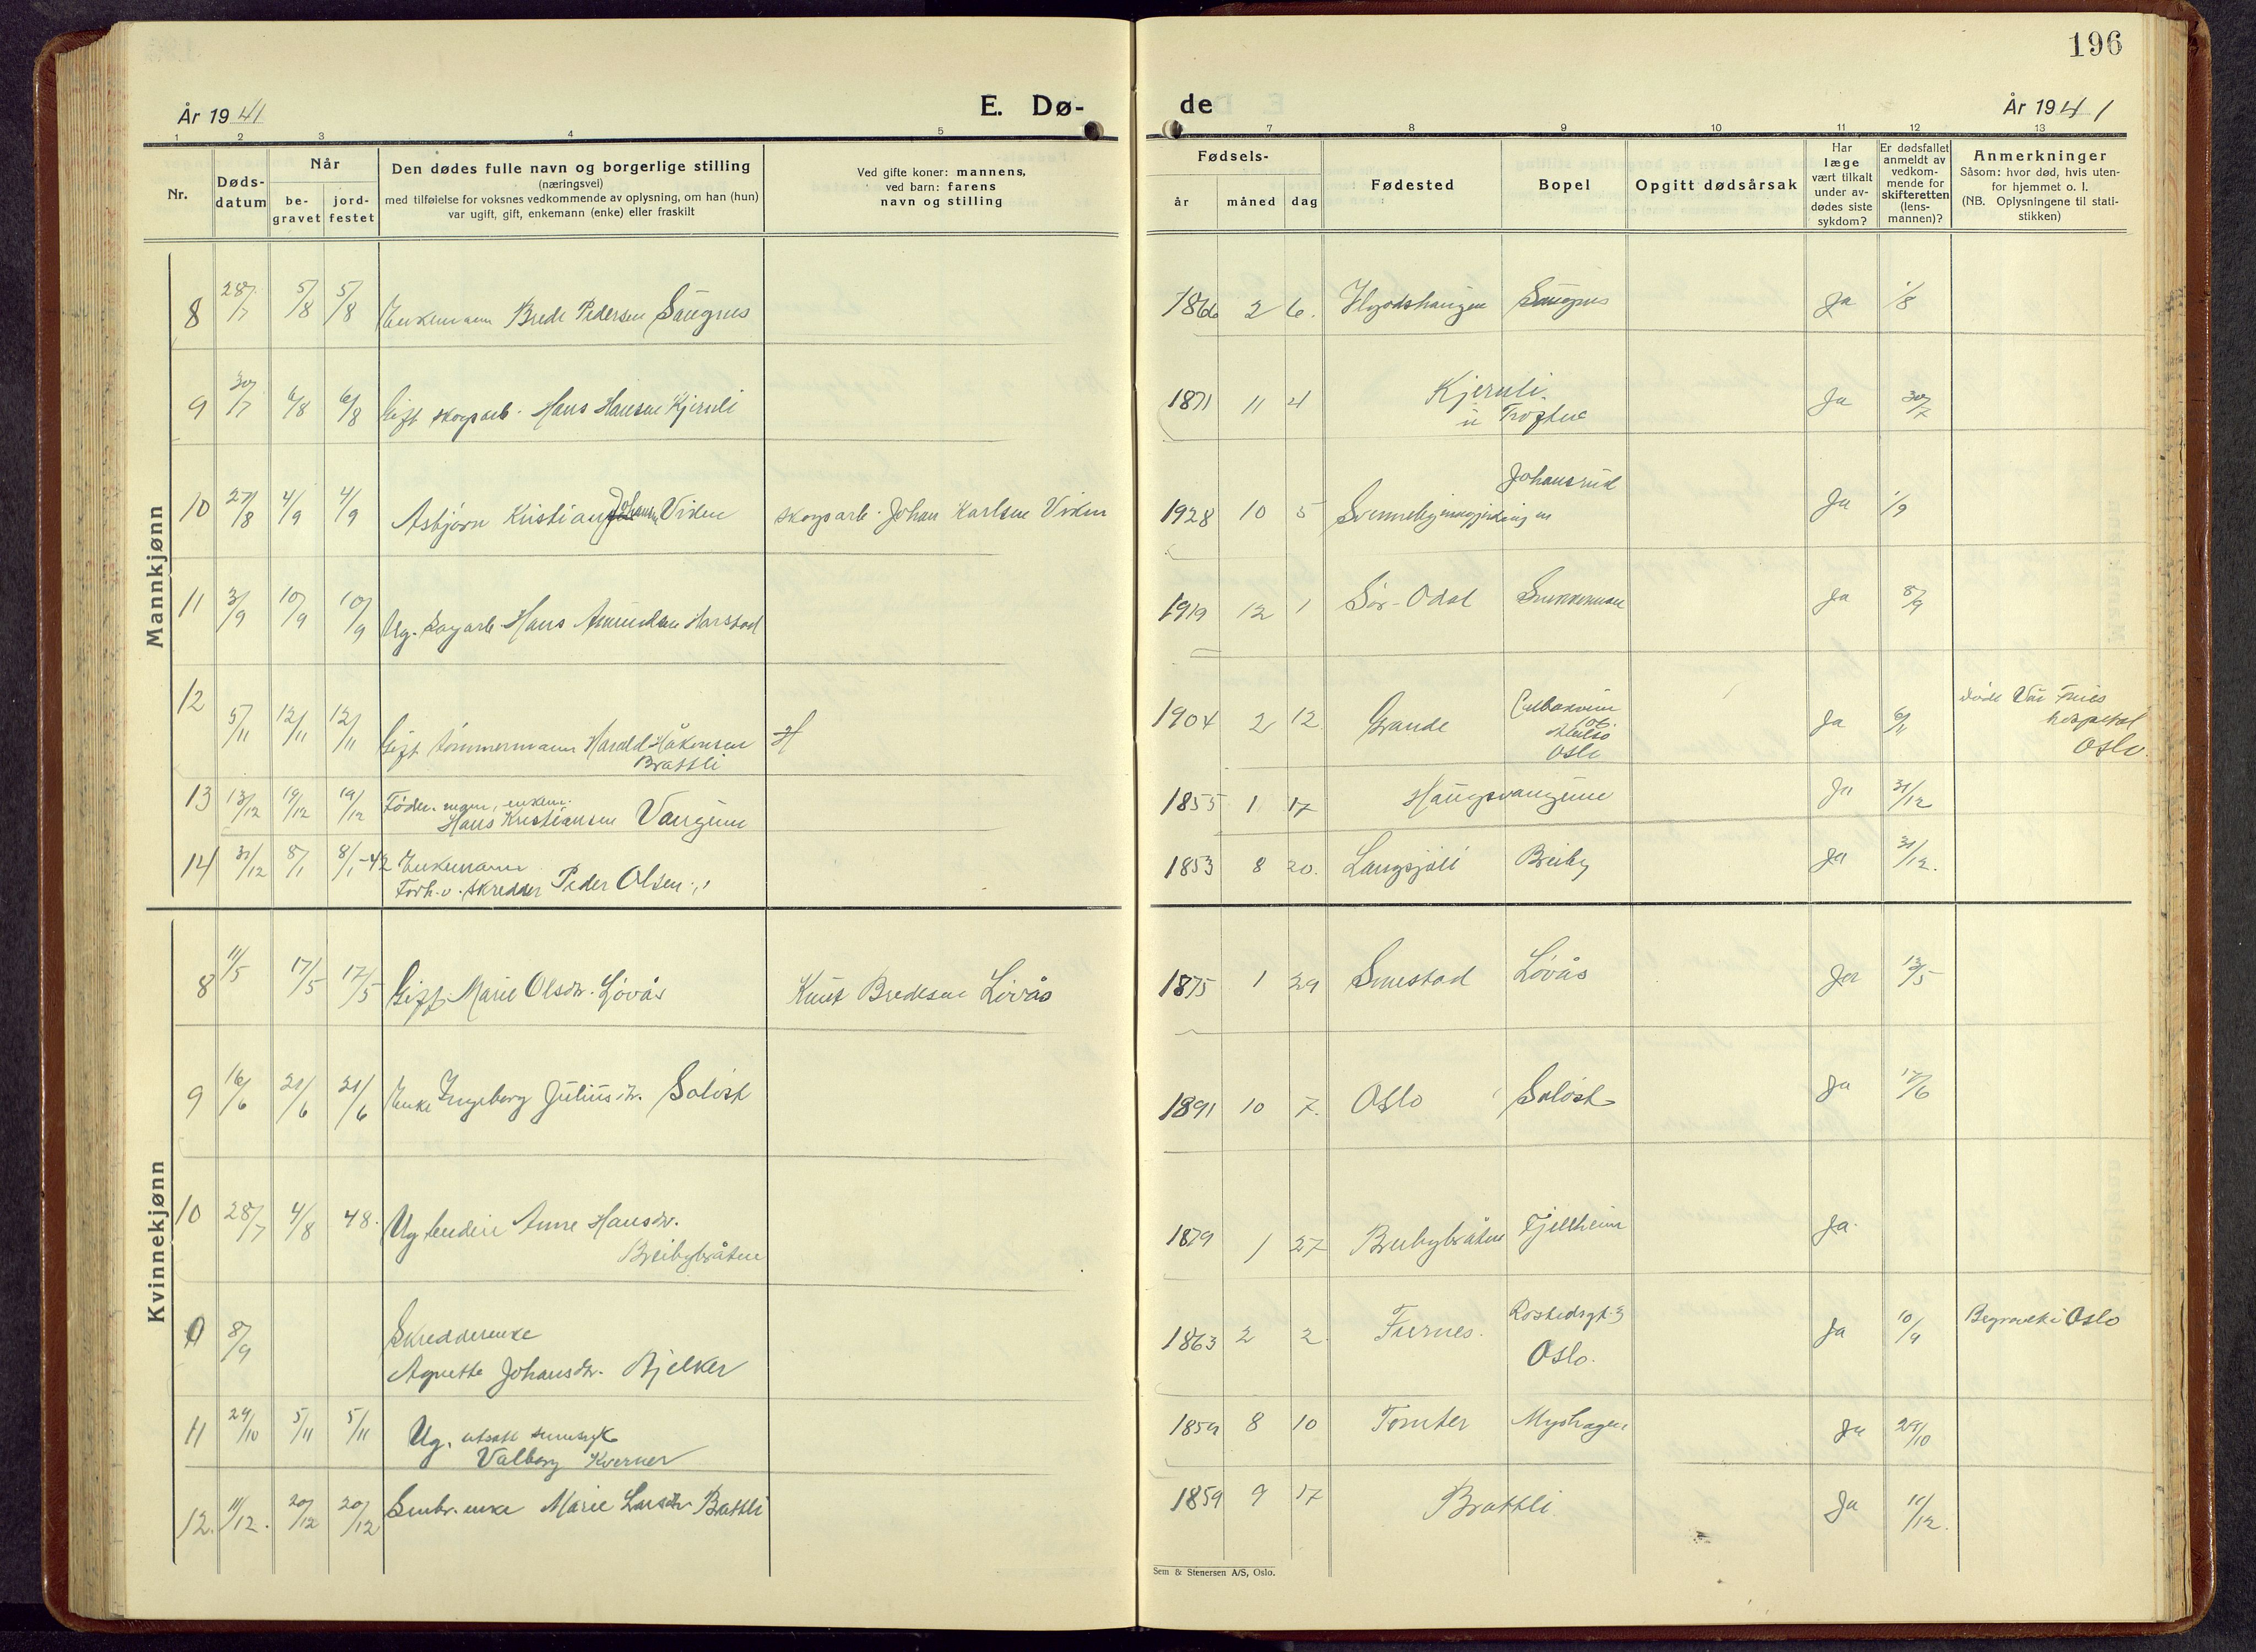 196
År 1941
E. Dø-
de
År 1941
1 2 3 4 5 7 8 9 10 11 12 13
Nr.
Døds-
datum
Når
be-
gravet
jord-
festet
Den dødes fulle navn og borgerlige stilling
(næringsvei)
med tilføielse for voksnes vedkommende av oplysning, om han (hun)
var ugift, gift, enkemann (enke) eller fraskilt
Ved gifte koner: mannens,
ved barn: farens
navn og stilling
Fødsels-
år måned dag
Fødested
Bopel
Opgitt dødsårsak
Har
læge
vært tilkalt
under av-
dødes siste
sykdom?
Er dødsfallet
anmeldt av
vedkom-
mende for
skifteretten
(lens-
mannen)?
Anmerkninger
Såsom: hvor død, hvis uten-
for hjemmet o. l.
(NB. Oplysningene til stati-
stikken)
Mannkjønn
8 28/7 5/8 5/8 Enkemann Brede Pedersen Saugnes 1866 2 6. Saugnes Ja 1/8
9 30/7 6/8 6/8 Gift skogsarb. Hans Hansen Kjernli 1871 11 4 Kjernli Ja 30/7
10 27/8 4/9 4/9 Asbjørn Kristian Johansen Viken skogsarb. Johan Karlsen Viken 1928 10 5 Johansrud Ja 1/9
11 3/9 10/9 10/9 Ug. Hans Amundsen Harstad 1919 12 1 Sør-Odal Snekkermoen Ja 8/9
12 5/11 12/11 12/11 Gift tømmermann Harald Håkonsen
Brattli H 1904 2 12 Grande Oslo Ja 6/11 døde Vår Frues
hospital
Oslo.
13 13/12 19/12 19/12 Føder. mann, enkem.
Hans Kristiansen Vangune 1855 1 17 Haugsvangune Ja 31/12
14 31/12 8/1 8/1-42 Enkemann
Forh.v. skredder Peder Olsen 1853 8 20. Langsjøli Breiby Ja 31/12.
Kvinnekjønn
8 11/5 17/5 17/5 Gift Marie Olsdr. Løvås Knut Bredesen Løvås 1875 1 29 Smestad Løvås Ja 13/5
9 16/6 21/6 21/6 Enke Ingeborg Juliusdr. Soløst 1891 10 7. Oslo Soløst Ja 17/6
10 28/7 4/8 4 8. Ug. budeie Anne Hansdr.
Breibybråten 1879 1 27 Breibybråten Fjellheim Ja.
0 8/9 Skredderenke
Agnette Johansdr. Bjelker 1863 2 2. Furnes. Oslo. Ja 10/9 Begravet i Oslo
11 24/10 5/11 5/11 Ug. utsatt sinnsyk
Valborg Kverner 1859 8 10 Tomter Myshagen Ja 29/10
12. 11/12. 20/12 20/12 Smbr. enke Marie Larsdr Brattli 1859 9 17 Brattli Ja 11/12.
Sem & Stenersen A/S, Oslo.